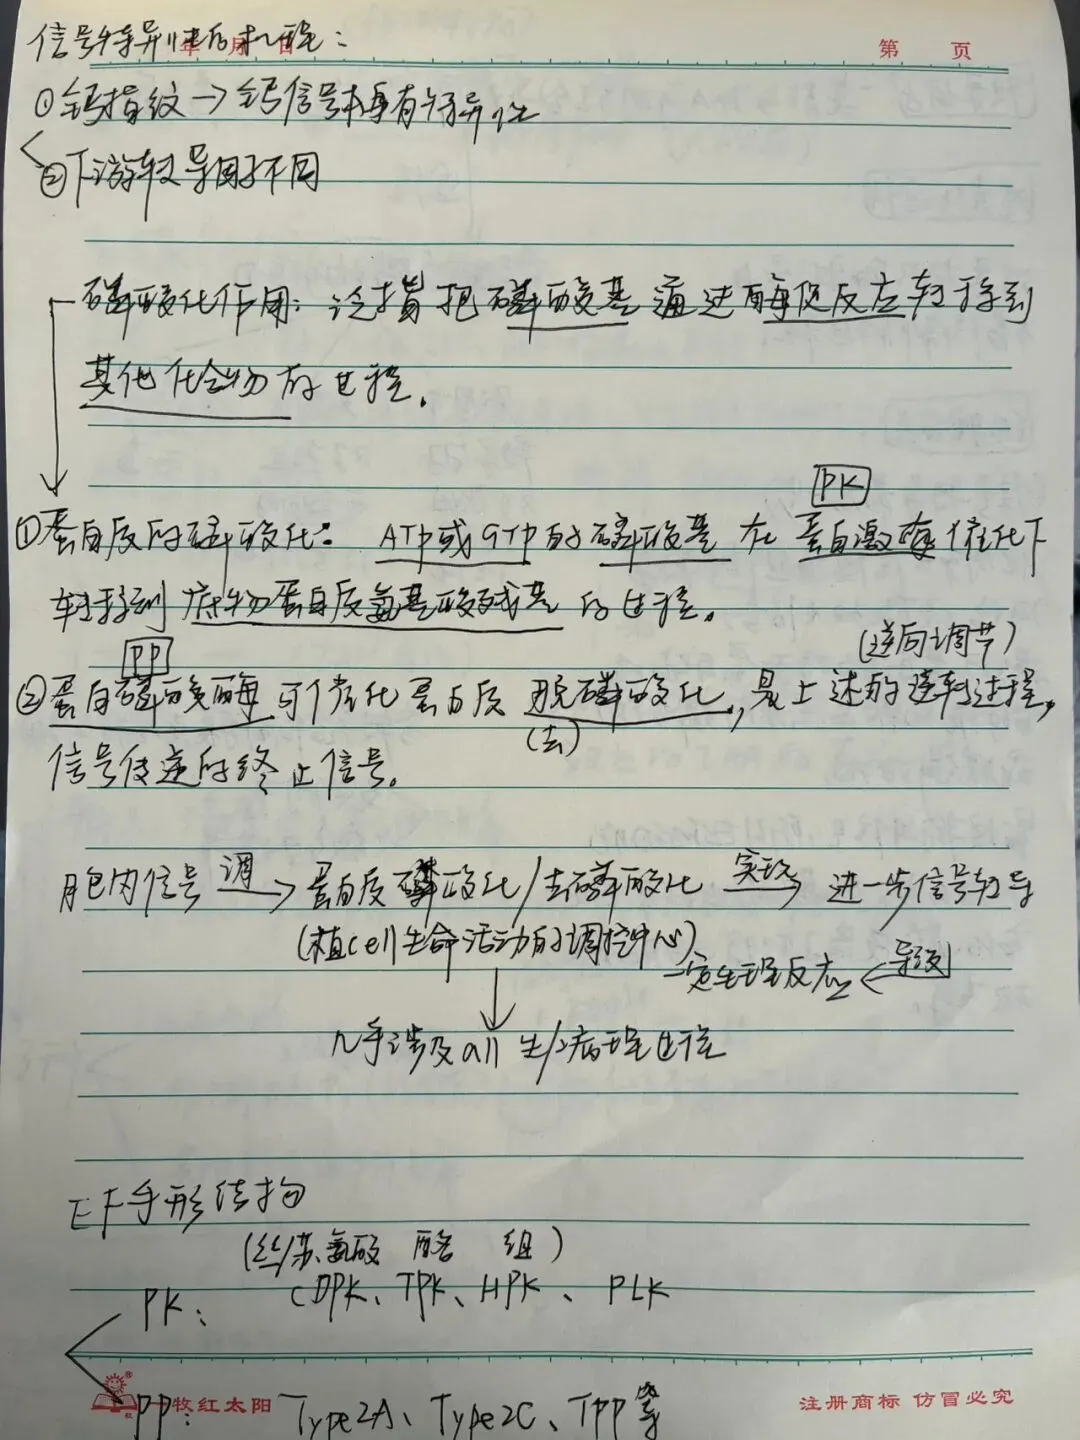 年 月 日
第 页
信号特异性的机理:
①钙指纹→钙信号本身有特异性
②下游转导因子不同
磷酸化作用:泛指把磷酸基通过酶促反应转移到
其他化合物的过程.
PK
①蛋白质的磷酸化: ATP或GTP的磷酸基在蛋白激酶催化下
转移到底物蛋白质氨基酸残基的过程.
(逆向调节)
PP
②蛋白磷酸酶可催化蛋白质脱磷酸化,是上述的逆转过程,
(去)
信号传递的终止信号.
胞内信号 调→ 蛋白质磷酸化/去磷酸化 实现→ 进一步信号转导
(植cell生命活动的调控中心)
一定生理反应 ←导致
几乎涉及all 生/病理过程
EF手形结构
(丝/苏氨酸 酪 组)
PK: CDPK、TPK、HPK、PLK
PP: Type2A、Type2C、TPP等
牧红太阳
注册商标 仿冒必究